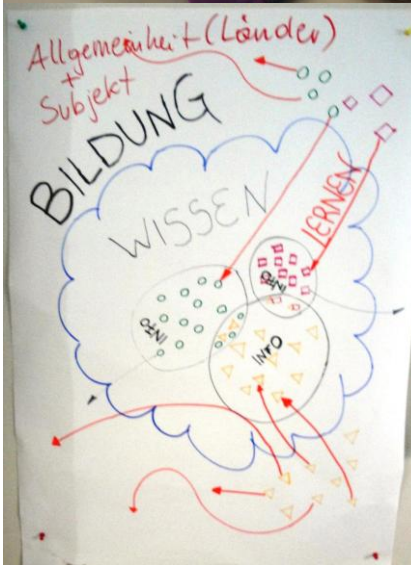 Allgemeinheit (Länder)
+
Subjekt
BILDUNG
WISSEN
LERNEN
INFO
INFO
INFO